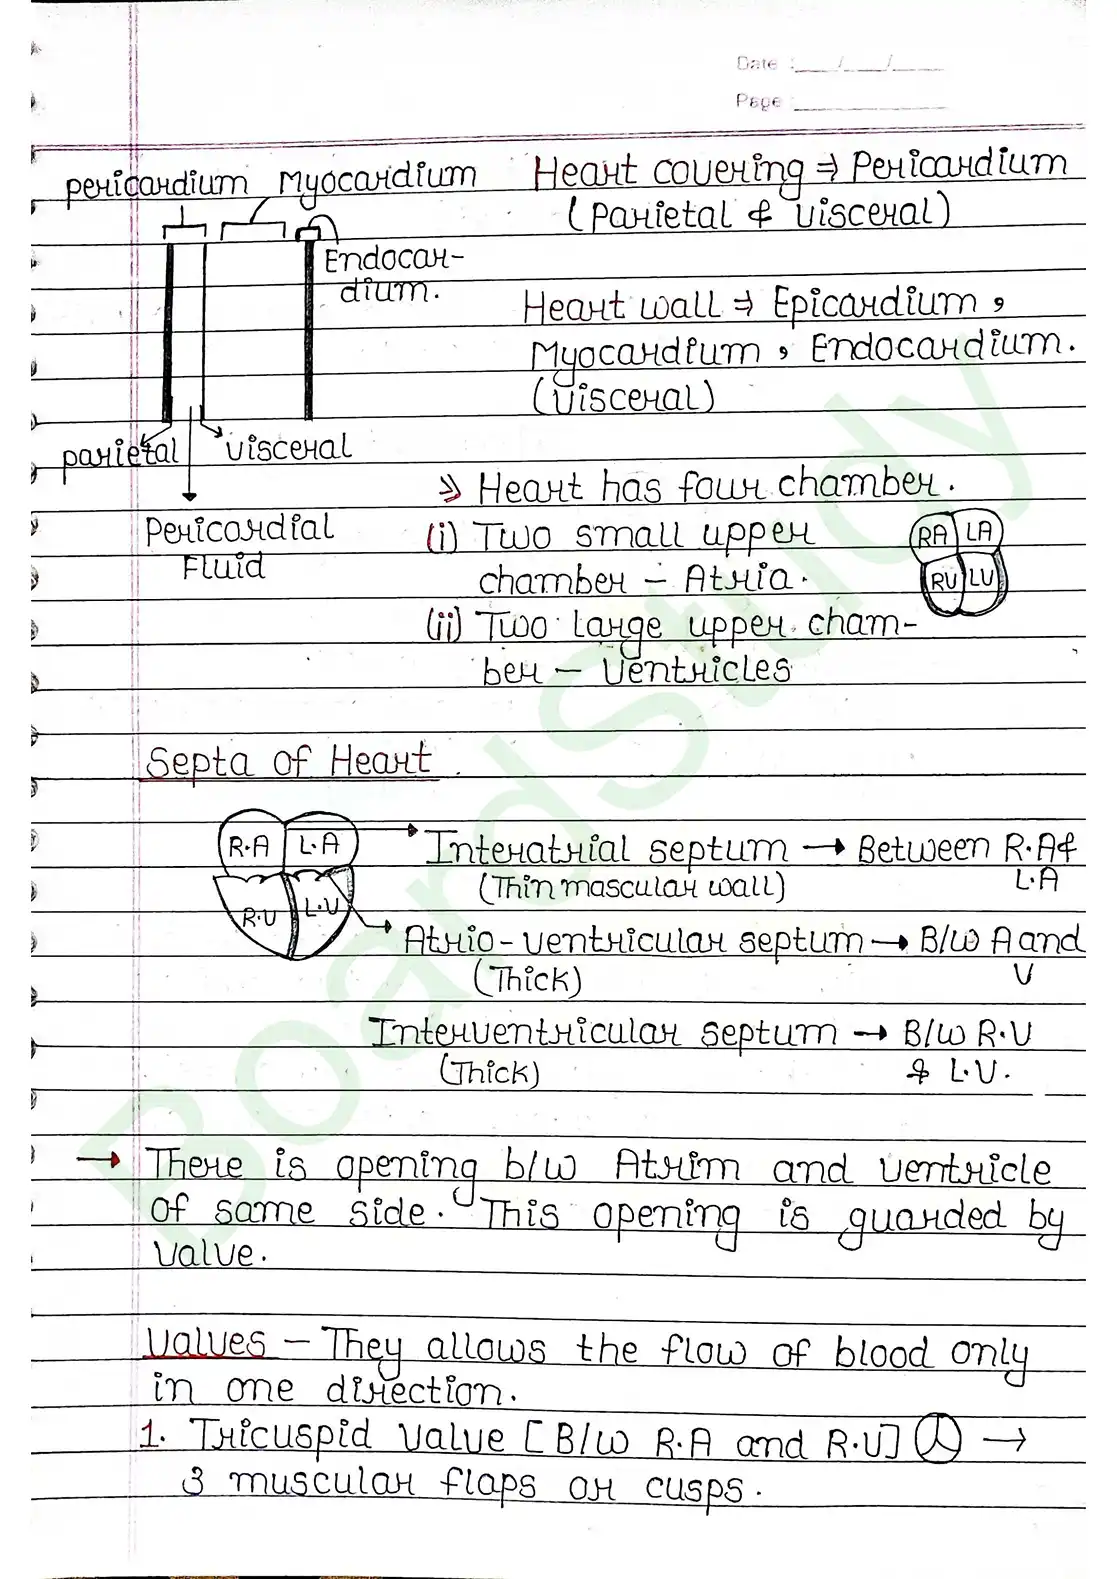 Date : __/__/__
Page : ________
Pericardium Myocardium Heart covering ⇒ Pericardium
(Parietal & visceral)
Endocar-
dium.
Heart wall ⇒ Epicardium,
Myocardium, Endocardium.
(visceral)
parietal visceral
Pericardial
Fluid
⇒ Heart has four chamber.
(i) Two small upper
chamber – Atria.
RA LA
RV LV
(ii) Two large upper cham-
ber – Ventricles
Septa of Heart
R.A L.A
R.V L.V
Interatrial septum → Between R.A &
L.A
(Thin mascular wall)
Atrio-ventricular septum → B/w A and
V
(Thick)
Interventricular septum → B/w R.V
& L.V.
(Thick)
→ There is opening b/w Atrim and ventricle
of same side. This opening is guarded by
valve.
Valves – They allows the flow of blood only
in one direction.
1. Tricuspid valve [B/w R.A and R.V] →
3 muscular flaps or cusps.
BoardStudy